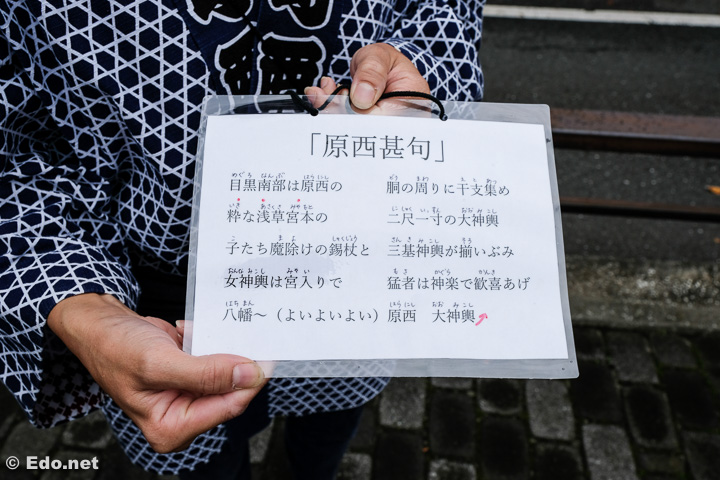 「原西甚句」
目黒南部は原西の　胴の周りに干支集め
粋な浅草宮本の　二尺一寸の大神輿
子たち魔除けの錫杖と　三基神輿が揃いぶみ
女神輿は宮入りで　猛者は神楽で歓喜あげ
八幡～（よいよいよい）原西　大神輿
© Edo.net